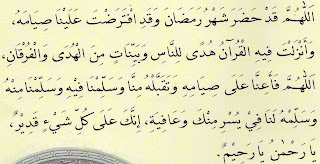 اَللّٰهُمَّ قَدْ حَضَرَ شَهْرُ رَمَضَانَ وَقَدِ افْتَرَضْتَ عَلَيْنَا صِيَامَهُ،
وَأَنْزَلْتَ فِيهِ الْقُرْآنَ هُدًى لِلنَّاسِ وَبَيِّنَاتٍ مِنَ الْهُدَى وَالْفُرْقَانِ،
اَللّٰهُمَّ فَأَعِنَّا عَلَى صِيَامِهِ وَتَقَبَّلْهُ مِنَّا وَسَلِّمْنَا فِيهِ وَسَلِّمْنَا مِنْهُ
وَسَلِّمْهُ لَنَا فِي يُسْرٍ مِنْكَ وَعَافِيَةٍ، إِنَّكَ عَلَى كُلِّ شَيْءٍ قَدِيْرٌ،
يَا رَحْمٰنُ يَا رَحِيْمُ.